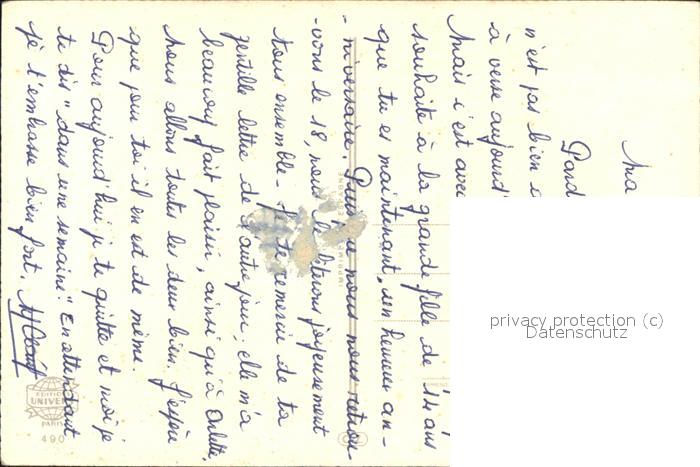 Ma
Pard
n'est pas bien
à verse aujourd'
Mais c'est avec
souhaite à la grande fille de 14 ans
que tu es maintenant, un heureux an-
-niversaire. Puisque nous nous retrou-
-vons le 18, nous le fêterons joyeusement
tous ensemble - Je te remercie de ta
gentille lettre de l'autre jour; elle m'a
beaucoup fait plaisir, ainsi qu'à Arlette,
Nous allons toutes les deux bien. J'espère
que pour toi il en est de même.
Pour aujourd'hui je te quitte et moi je
te dis "dans une semaine" En attendant
je t'embrasse bien fort.
privacy protection (c)
Datenschutz
EDITIONS
UNIVERS
PARIS
490